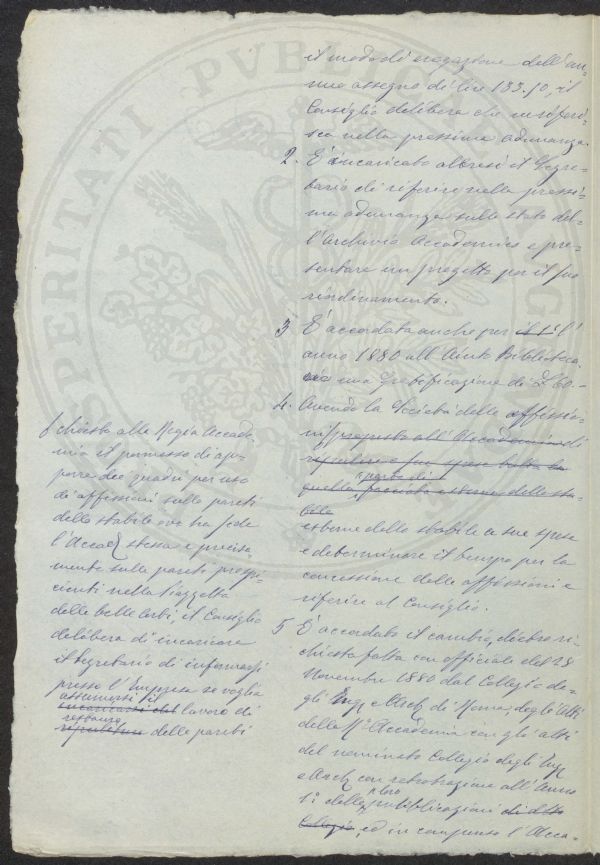 il modo di erogazione dell'an-
nuo assegno di lire 133.10, il
Consiglio delibera che si riferi-
sca nella prossima adunanza.
2. E' incaricato altresì il Segre-
tario di riferire nella prossi-
ma adunanza sullo stato del-
l'Archivio Accademico e pre-
sentare un progetto per il suo
riordinamento.
3 E' accordata anche per l'
anno 1880 all'Aiuto Biblioteca-
rio una gratificazione di £ 60.-
4. Avendo la Società delle affissio-
ni proposto all'Accademia di
ripulire a sue spese tutta la
parte di
quella facciata esterna dello sta-
bile
esterne dello stabile a sue spese
e determinare il tempo per la
concessione delle affissioni e
riferire al Consiglio.
5 E' accordato il cambio, dietro ri-
chiesta fatta con officiale del 28
Novembre 1880 dal Collegio de-
gli Ingi e Archi di Roma, degli Atti
della Ra Accademia con gli atti
del nominato Collegio degli Ingi
e Archi con retrotrazione all'Anno
1° della loro pubblicazioni di detto
Collegio, ed in compenso l'Acca-
chiesto alla Regia Accade-
mia il permesso di ap-
porre dei quadri per uso
di affissioni sulle pareti
dello stabile ove ha sede
l'Accad stessa e precisa-
mente sulle pareti prospi-
cienti nella Piazzetta
delle belle Arti, il Consiglio
delibera d'incaricare
il Segretario di informarsi
presso l'Impresa se voglia
assumersi il
incaricarsi del lavoro di
restauro
ripulitura delle pareti
SPERITATI PVBLIC